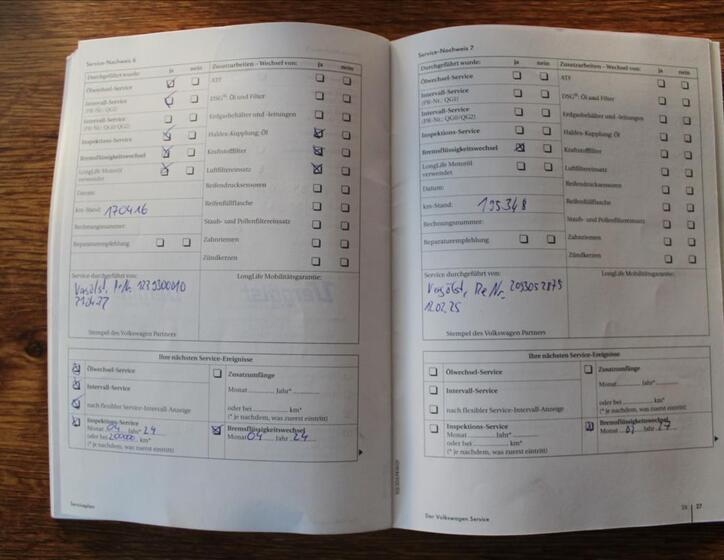 Service-Nachweis 6
Durchgeführt wurde: ja nein
Ölwechsel-Service
Intervall-Service
(PR-Nr.: QG1)
Intervall-Service
(PR-Nr.: QG0/QG2)
Inspektions-Service
Bremsflüssigkeitswechsel
LongLife Motoröl
verwendet
Datum:
km-Stand: 170416
Rechnungsnummer:
Reparaturempfehlung
Zusatzarbeiten – Wechsel von: ja nein
ATF
DSG®: Öl und Filter
Erdgasbehälter und -leitungen
Haldex-Kupplung: Öl
Kraftstofffilter
Luftfiltereinsatz
Reifendrucksensoren
Reifenfüllflasche
Staub- und Pollenfiltereinsatz
Zahnriemen
Zündkerzen
Service durchgeführt von:
Stempel des Volkswagen Partners
LongLife Mobilitätsgarantie:
Ihre nächsten Service-Ereignisse
Ölwechsel-Service
Intervall-Service
nach flexibler Service-Intervall-Anzeige
Inspektions-Service
Monat 04 Jahr* 24
oder bei 200000 km*
(* je nachdem, was zuerst eintritt)
Zusatzumfänge
Monat Jahr*
oder bei km*
(* je nachdem, was zuerst eintritt)
Bremsflüssigkeitswechsel
Monat 04 Jahr 24
Serviceplan
Service-Nachweis 7
Durchgeführt wurde: ja nein
Ölwechsel-Service
Intervall-Service
(PR-Nr.: QG1)
Intervall-Service
(PR-Nr.: QG0/QG2)
Inspektions-Service
Bremsflüssigkeitswechsel
LongLife Motoröl
verwendet
Datum:
km-Stand: 195348
Rechnungsnummer:
Reparaturempfehlung
Zusatzarbeiten – Wechsel von: ja nein
ATF
DSG®: Öl und Filter
Erdgasbehälter und -leitungen
Haldex-Kupplung: Öl
Kraftstofffilter
Luftfiltereinsatz
Reifendrucksensoren
Reifenfüllflasche
Staub- und Pollenfiltereinsatz
Zahnriemen
Zündkerzen
Service durchgeführt von:
12.02.25
Stempel des Volkswagen Partners
LongLife Mobilitätsgarantie:
Ihre nächsten Service-Ereignisse
Ölwechsel-Service
Intervall-Service
nach flexibler Service-Intervall-Anzeige
Inspektions-Service
Monat Jahr*
oder bei km*
(* je nachdem, was zuerst eintritt)
Zusatzumfänge
Monat Jahr*
oder bei km*
(* je nachdem, was zuerst eintritt)
Bremsflüssigkeitswechsel
Monat Jahr 27
Der Volkswagen Service
26 27